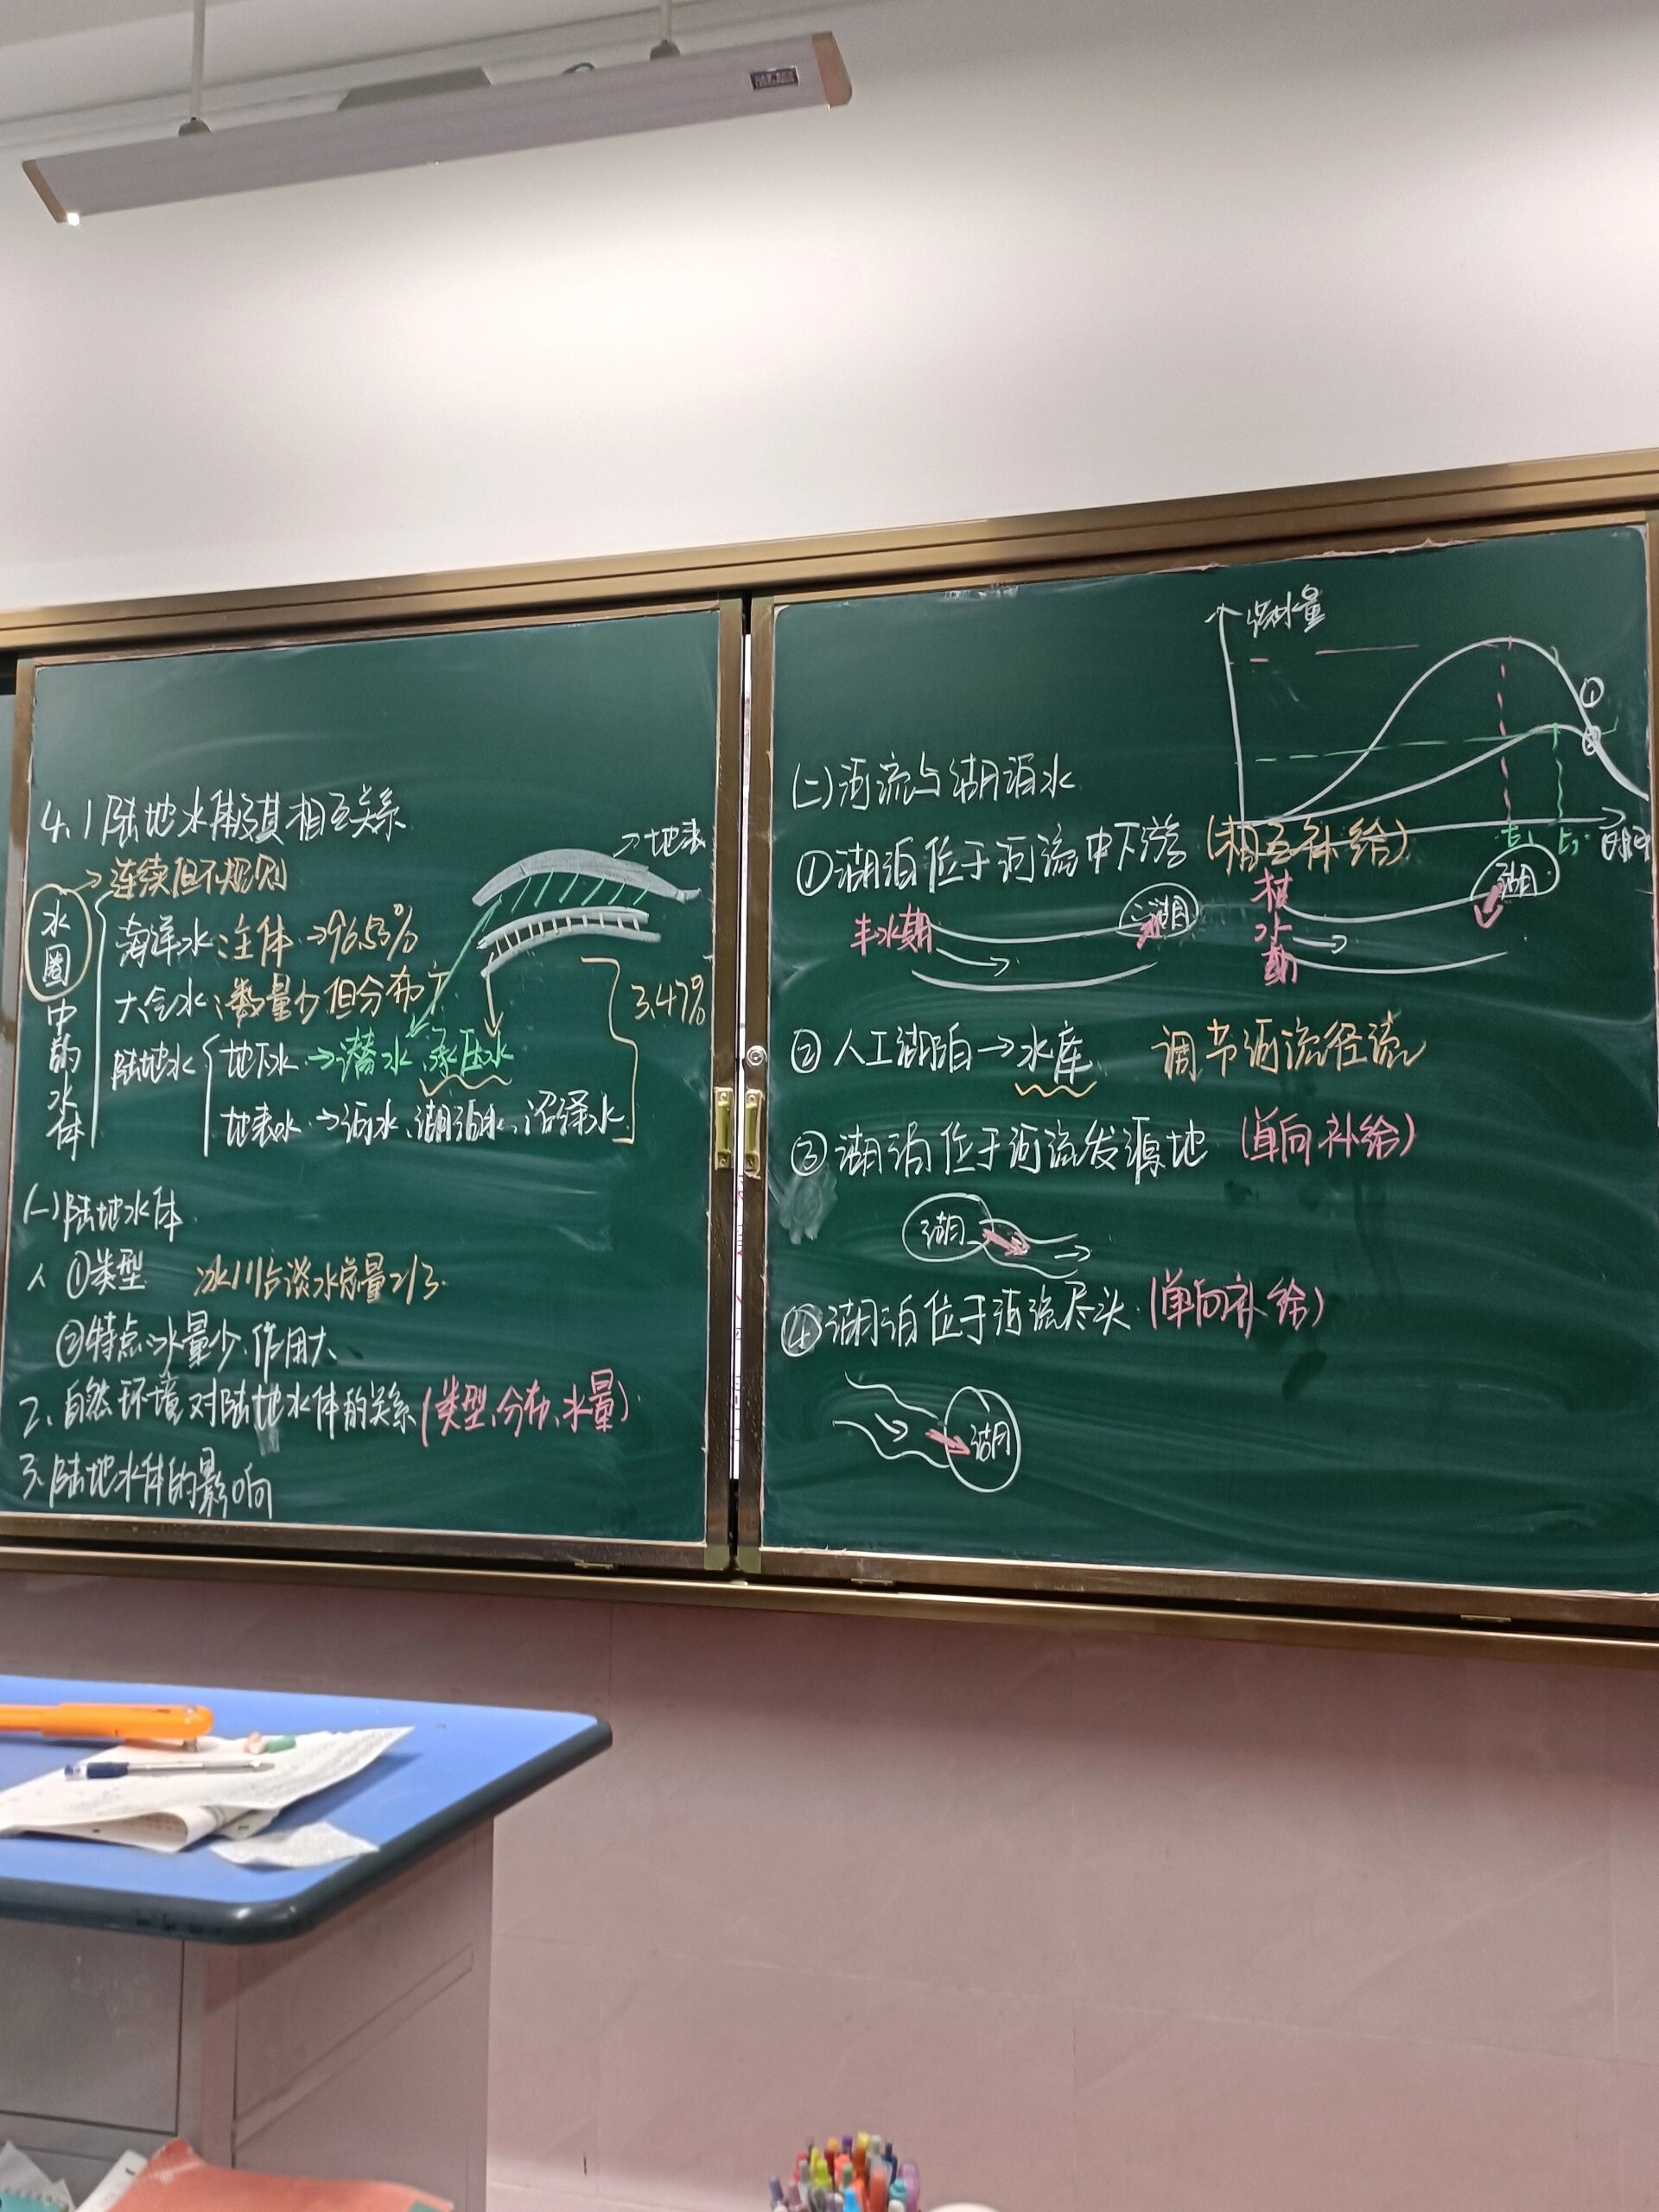 4.1 陆地水体及其相互关系
→连续但不规则
水圈中的水体
海洋水:主体→96.53%
大气水:数量少但分布广
陆地水
地下水→潜水、承压水
地表水→河水、湖泊水、沼泽水
→地表
3.47%
(一)陆地水体
1、①类型 冰川占淡水总量2/3
②特点:水量少、作用大
2、自然环境对陆地水体的关系(类型、分布、水量)
3、陆地水体的影响
①
②
t₁ t₂ 时间
(二)河流与湖泊水
①湖泊位于河流中下游(相互补给)
丰水期
湖
枯水期
湖
②人工湖泊→水库 调节河流径流
③湖泊位于河流发源地(单向补给)
湖
④湖泊位于河流尽头(单向补给)
湖